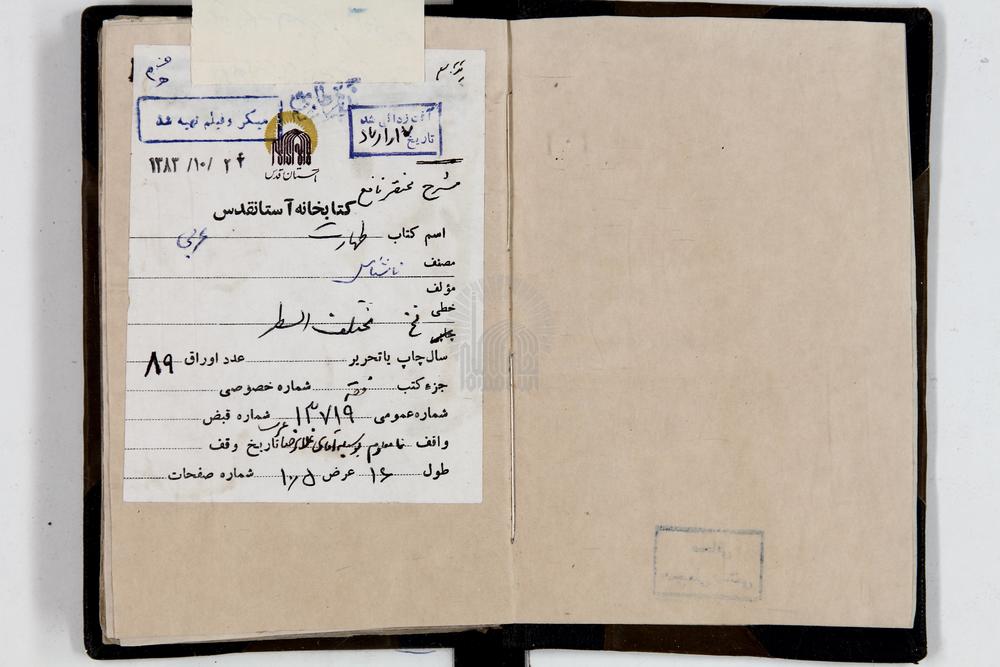 میکر وفیلم تهیه شد
آفت زدائی شد
تاریخ
۱۳۸۳ /۱۰/ ۲۴
آستان قدس
شرح مختصر نافع
کتابخانه آستانقدس
اسم کتاب طهارت عربی
مصنف ناشناس
مؤلف
خطی نسخ مختلف السطر
چاپی
سال چاپ یا تحریر عدد اوراق ۸۹
جزء کتب فقه شماره خصوصی
شماره عمومی ۱۳۷۱۹ شماره قبض
واقف نامعلوم بوسیله آقای تاریخ وقف
طول ۱۶ عرض ۱۰/۵ شماره صفحات